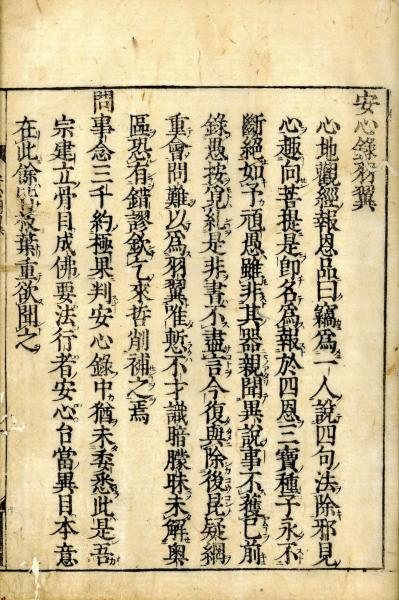 安心錄羽翼
心地觀經報恩品曰縞為一人說四句法除邪見
心趣向菩提是即名為報於四恩三寶種子永不
斷絕如予頑愚雖非其器親聞異說事不獲已前
錄愚按寬糺是非書不盡言今復與除後昆疑網
重會問難以為羽翼唯慙不才識暗朦昧未解奧
區恐有錯謬欤乞來哲削補之焉
問事念三千約極果判安心錄中猶未委悉此是吾
宗建立骨目成佛要法行者安心台當異目本意
在此餘皆枝葉重欲聞之